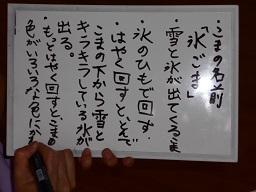 ・こまの名前
「氷ごま」
・雪と氷が出てくるこま
・氷のひもで回す.
・はやく回すと、とんで
こまの下から雪と
キラキラしている氷が
出る。
・もっとはやく回すと、こまの
色がいろいろな色にかわ